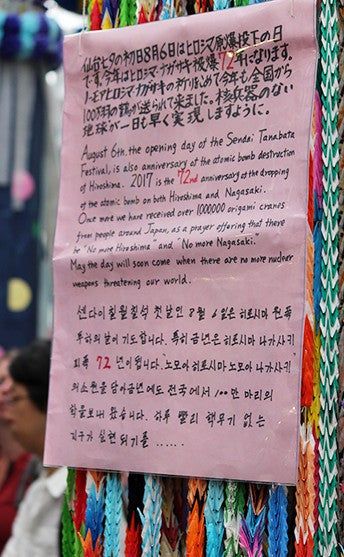 仙台七夕の初日8月6日はヒロシマ原爆投下の日
です。今年はヒロシマ・ナガサキ被爆72年になります。
ノーモアヒロシマ・ナガサキの祈りをこめて今年も全国から
100万羽の鶴が送られて来ました。核兵器のない
地球が一日も早く実現しますように。
August 6th, the opening day of the Sendai Tanabata
Festival, is also anniversary of the atomic bomb destruction
of Hiroshima. 2017 is the 72nd anniversary of the dropping
of the atomic bomb on both Hiroshima and Nagasaki.
Once more we have received over 1000000 origami cranes
from people around Japan, as a prayer offering that there
be "No more Hiroshima" and "No more Nagasaki."
May the day will soon come when there are no more nuclear
weapons threatening our world.
센다이칠월칠석 첫날인 8월 6일은 히로시마 원폭
투하의 날이기도합니다. 특히 금년은 히로시마 나가사키
피폭 72년이됩니다. "노모아 히로시마 노모아 나가사키"
의 소원을 담아 금년에도 전국에서 100만 마리의
학을 보내 왔습니다. 하루 빨리 핵무기 없는
지구가 실현되기를 ......